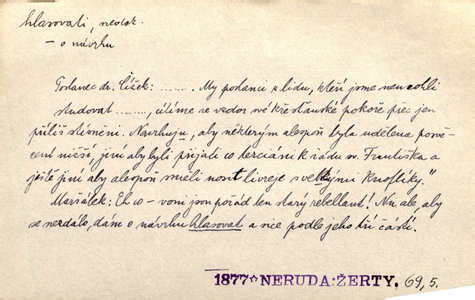 hlasovati, nedok.
– o návrhu
Poslanec dr. Čížek: ........ My poslanci z lidu, kteří jsme nemohli
studovat ......., cítíme se vzdor své křesťanské pokoře přec jen
příliš stísněni. Navrhuju, aby některým alespoň byla udělena posvě-
cení nižší, jiní aby byli přijati co terciáni k řádu sv. Františka a
ještě jiní aby alespoň směli nosit livreje s velkými knoflíky."
Maršálek: Eh co – voni jsou pořád ten starý rebellant! Nu ale aby
se nezdálo, dám o návrhu hlasovat a sice podle jeho tří částí.
1877 * NERUDA: ŽERTY. 69, 5.